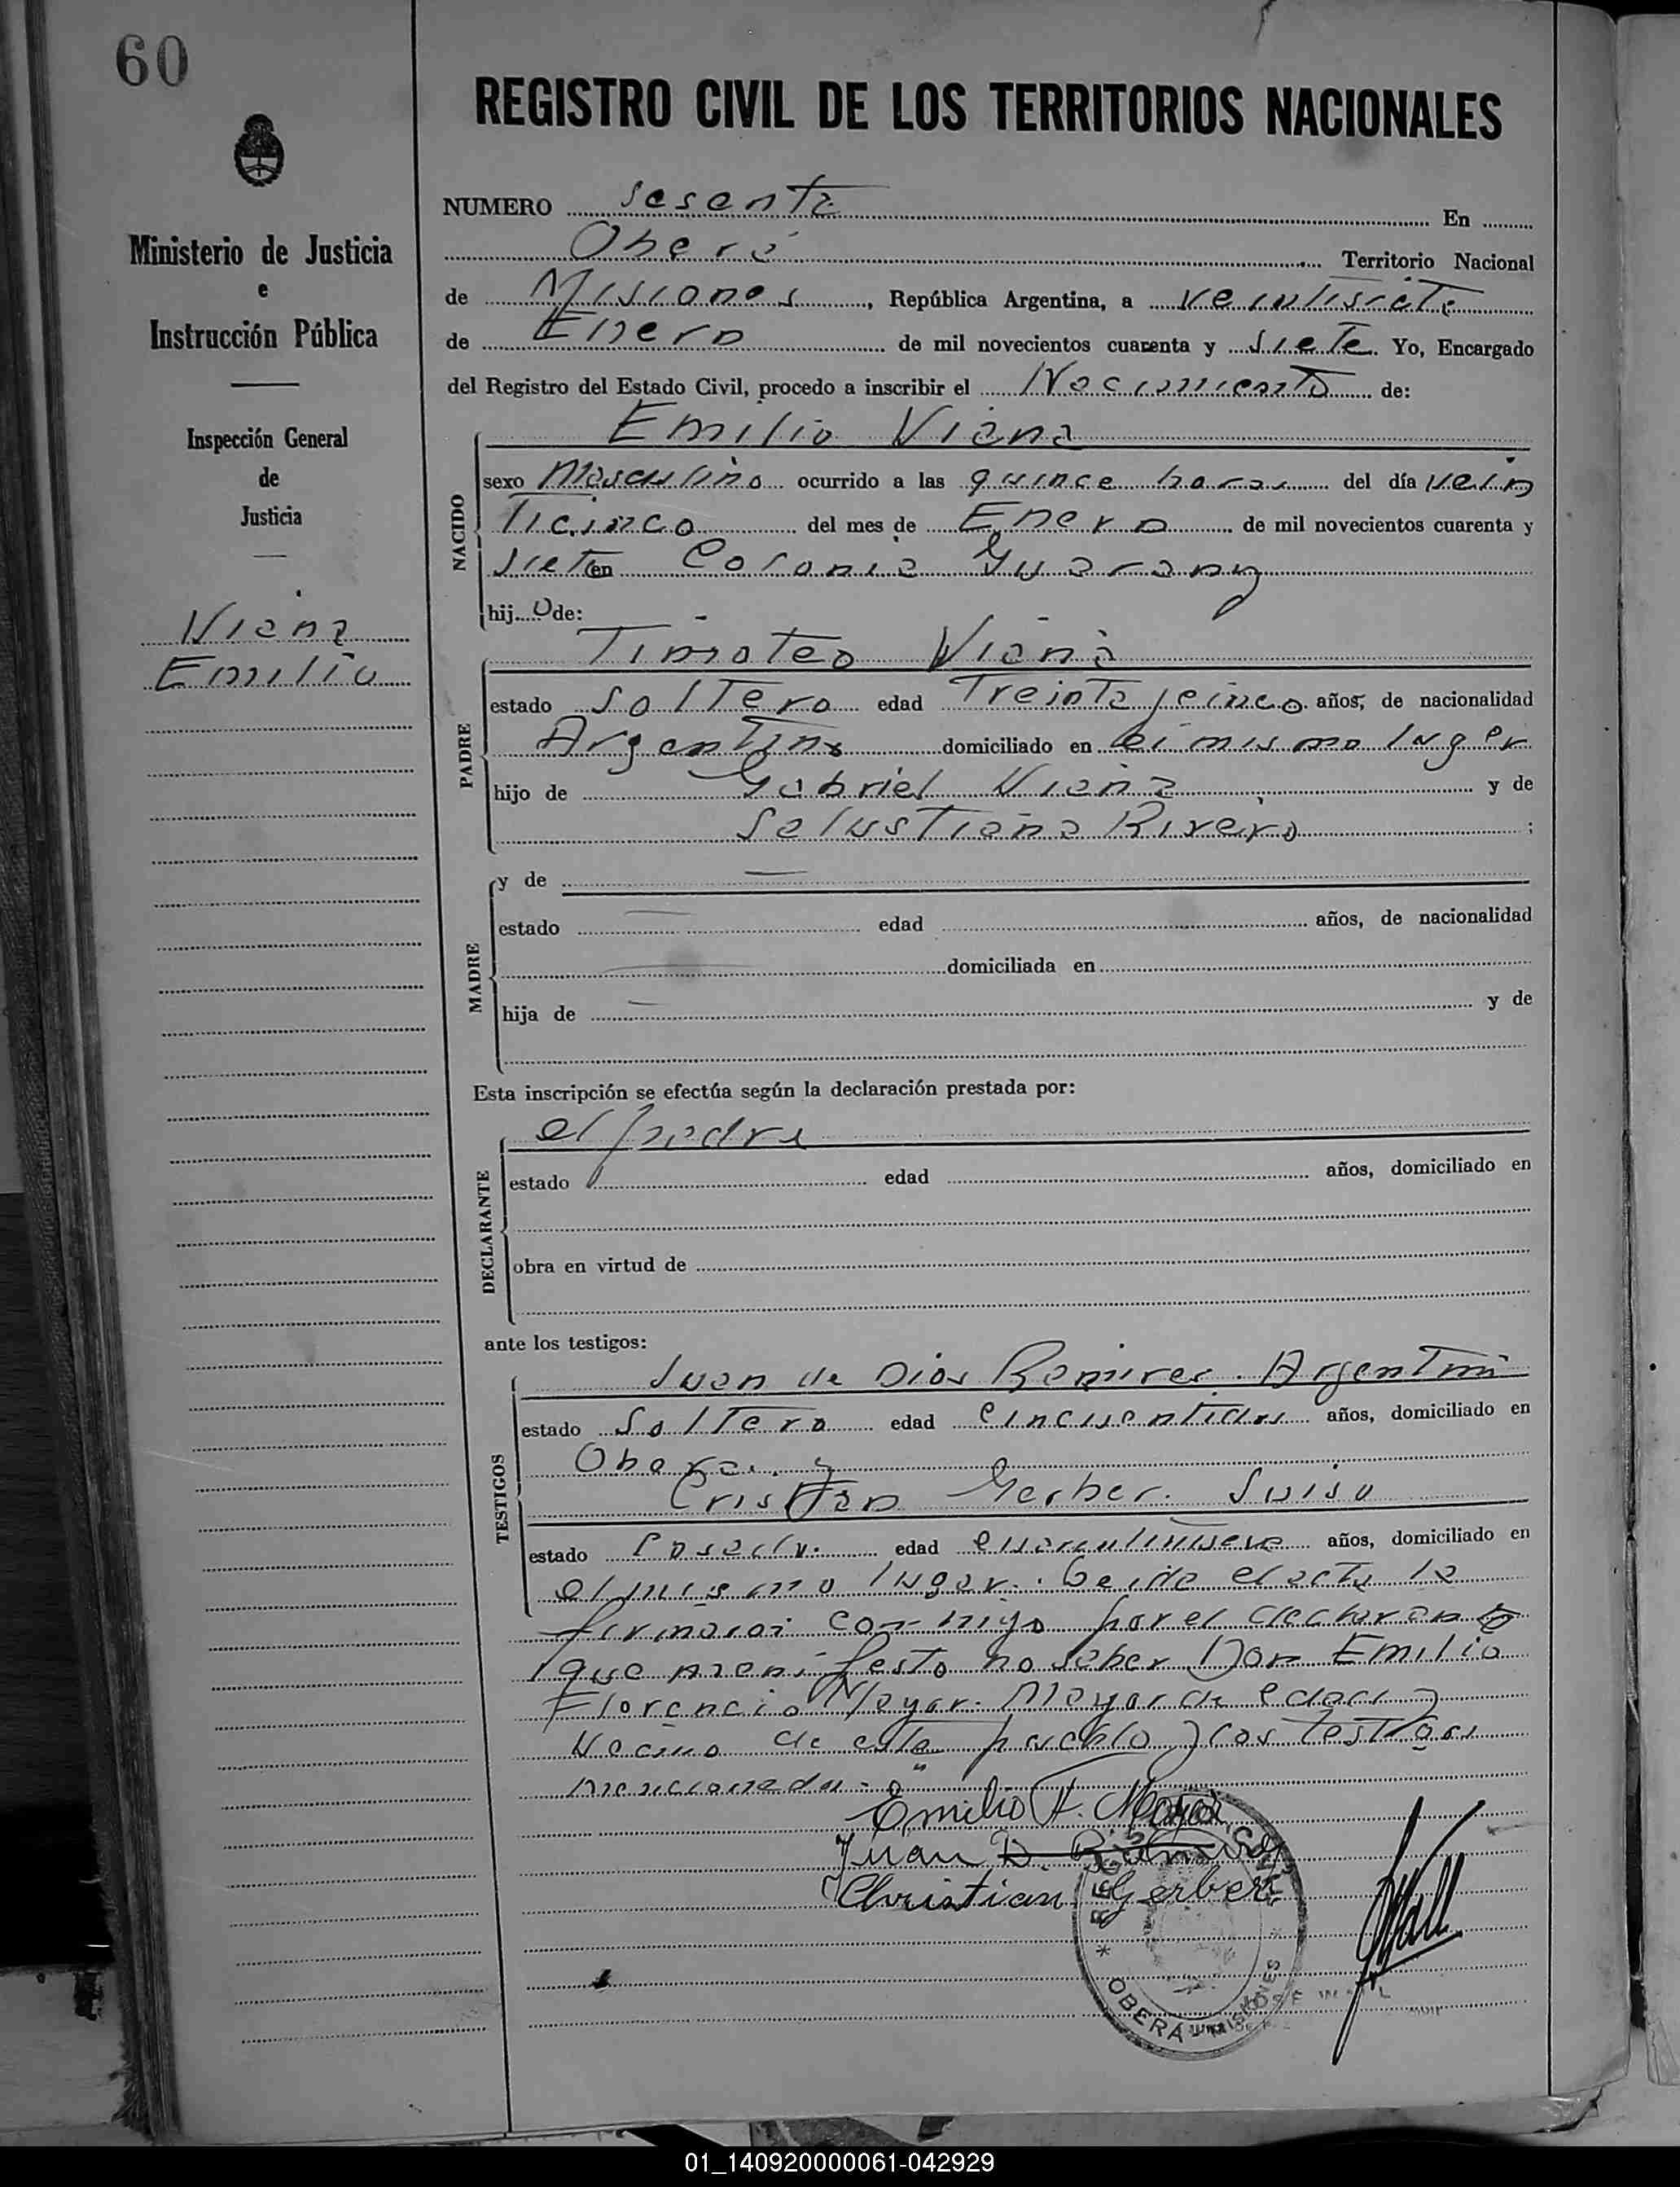 60
REGISTRO CIVIL DE LOS TERRITORIOS NACIONALES
Ministerio de Justicia
e
Instrucción Pública
Inspección General
de
Justicia
Viana
Emilio
NUMERO sesenta En
Oberá Territorio Nacional
de Misiones, República Argentina, a veintisiete
de Enero de mil novecientos cuarenta y siete. Yo, Encargado
del Registro del Estado Civil, procedo a inscribir el Nacimiento de:
NACIDO
Emilio Viana
sexo Masculino ocurrido a las quince horas del día vein
ticinco del mes de Enero de mil novecientos cuarenta y
siete en Colonia Guarany
hijo de:
PADRE
Timoteo Viana
estado soltero edad Treinta y cinco años, de nacionalidad
Argentino domiciliado en el mismo lugar
hijo de Gabriel Viana y de
Salustiana Rivero ;
MADRE
y de —
estado — edad años, de nacionalidad
domiciliada en
hija de — y de
Esta inscripción se efectúa según la declaración prestada por:
DECLARANTE
el padre
estado edad años, domiciliado en
obra en virtud de
ante los testigos:
TESTIGOS
Juan de Dios Ramires. Argentino
estado Soltero edad cincuentidos años, domiciliado en
Obera. y
Cristian Gerber. Suiso
estado Casado. edad años, domiciliado en
el mismo lugar. Leida el acta la
firmaron conmigo por el declarante
que manifesto no saber Don Emilio
Florencio Mayar. Mayor de edad y
Vecino de este pueblo y los testigos
mencionados.
Emilio F.
Juan D.
Christian Gerber
OBERÁ
MISIONES
01_140920000061-042929